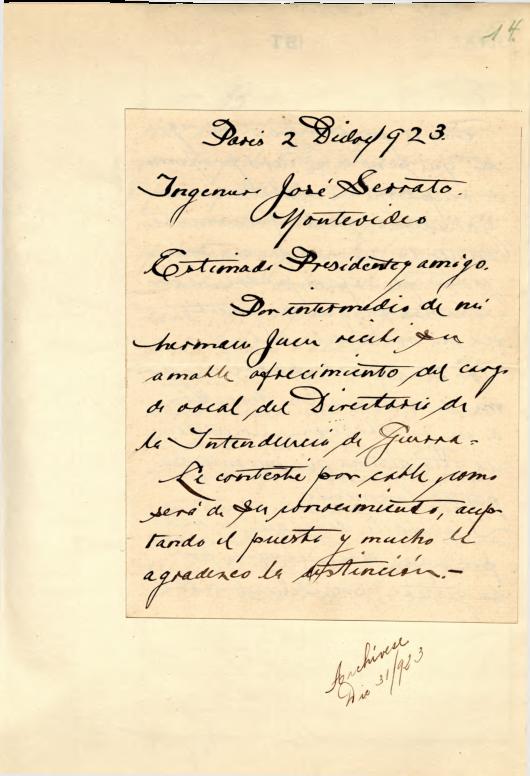 14.
Paris 2 Dicbre/923.
Ingeniero José Serrato.
Montevideo
Estimado Presidente y amigo.
Por intermedio de mi
hermano Juan recibi su
amable ofrecimiento del cargo
de vocal del Directorio de
la Intendencia de Guerra.-
Le contesté por cable, como
será de su conocimiento, acep-
tando el puesto y mucho le
agradezco la distinción.-
Archívese
Dic 31/923